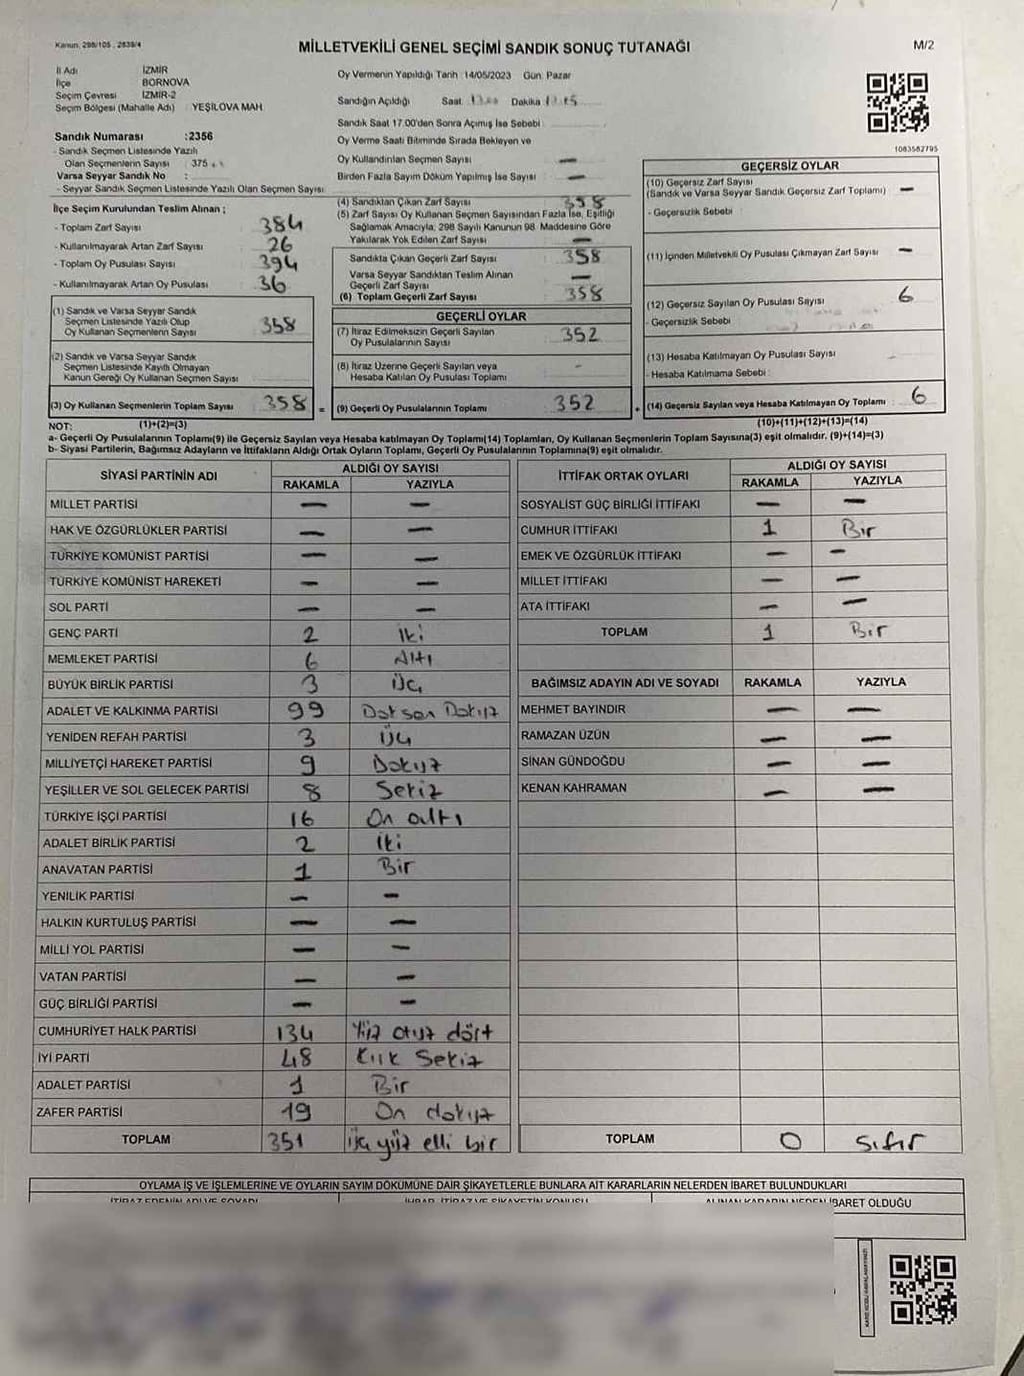 Kanun: 298/105 , 2839/4
MİLLETVEKİLİ GENEL SEÇİMİ SANDIK SONUÇ TUTANAĞI
M/2
İl Adı İZMİR
İlçe BORNOVA
Seçim Çevresi İZMİR-2
Seçim Bölgesi (Mahalle Adı) YEŞİLOVA MAH.
Oy Vermenin Yapıldığı Tarih :14/05/2023 Gün: Pazar
Sandığın Açıldığı Saat Dakika
Sandık Saat 17.00'den Sonra Açılmış İse Sebebi :
Oy Verme Saati Bitiminde Sırada Bekleyen ve
Oy Kullandırılan Seçmen Sayısı —
Birden Fazla Sayım Döküm Yapılmış İse Sayısı —
1083582795
Sandık Numarası :2356
- Sandık Seçmen Listesinde Yazılı
Olan Seçmenlerin Sayısı : 375
Varsa Seyyar Sandık No :
- Seyyar Sandık Seçmen Listesinde Yazılı Olan Seçmen Sayısı:
İlçe Seçim Kurulundan Teslim Alınan ;
- Toplam Zarf Sayısı 384
- Kullanılmayarak Artan Zarf Sayısı 26
- Toplam Oy Pusulası Sayısı 394
- Kullanılmayarak Artan Oy Pusulası 36
(1) Sandık ve Varsa Seyyar Sandık
Seçmen Listesinde Yazılı Olup
Oy Kullanan Seçmenlerin Sayısı 358
(2) Sandık ve Varsa Seyyar Sandık
Seçmen Listesinde Kayıtlı Olmayan
Kanun Gereği Oy Kullanan Seçmen Sayısı
(3) Oy Kullanan Seçmenlerin Toplam Sayısı 358 =
(4) Sandıktan Çıkan Zarf Sayısı 358
(5) Zarf Sayısı Oy Kullanan Seçmen Sayısından Fazla İse, Eşitliği
Sağlamak Amacıyla, 298 Sayılı Kanunun 98. Maddesine Göre
Yakılarak Yok Edilen Zarf Sayısı —
Sandıkta Çıkan Geçerli Zarf Sayısı 358
Varsa Seyyar Sandıktan Teslim Alınan
Geçerli Zarf Sayısı —
(6) Toplam Geçerli Zarf Sayısı 358
GEÇERLİ OYLAR
(7) İtiraz Edilmeksizin Geçerli Sayılan
Oy Pusulalarının Sayısı 352
(8) İtiraz Üzerine Geçerli Sayılan veya
Hesaba Katılan Oy Pusulası Toplamı -
(9) Geçerli Oy Pusulalarının Toplamı 352 +
GEÇERSİZ OYLAR
(10) Geçersiz Zarf Sayısı
(Sandık ve Varsa Seyyar Sandık Geçersiz Zarf Toplamı) —
- Geçersizlik Sebebi :
(11) İçinden Milletvekili Oy Pusulası Çıkmayan Zarf Sayısı —
(12) Geçersiz Sayılan Oy Pusulası Sayısı 6
- Geçersizlik Sebebi :
(13) Hesaba Katılmayan Oy Pusulası Sayısı
- Hesaba Katılmama Sebebi :
(14) Geçersiz Sayılan veya Hesaba Katılmayan Oy Toplamı 6
NOT: (1)+(2)=(3) (10)+(11)+(12)+(13)=(14)
a- Geçerli Oy Pusulalarının Toplamı(9) ile Geçersiz Sayılan veya Hesaba katılmayan Oy Toplamı(14) Toplamları, Oy Kullanan Seçmenlerin Toplam Sayısına(3) eşit olmalıdır. (9)+(14)=(3)
b- Siyasi Partilerin, Bağımsız Adayların ve İttifakların Aldığı Ortak Oyların Toplamı, Geçerli Oy Pusulalarının Toplamına(9) eşit olmalıdır.
SİYASİ PARTİNİN ADI ALDIĞI OY SAYISI
RAKAMLA YAZIYLA
MİLLET PARTİSİ — —
HAK VE ÖZGÜRLÜKLER PARTİSİ — —
TÜRKİYE KOMÜNİST PARTİSİ — —
TÜRKİYE KOMÜNİST HAREKETİ — —
SOL PARTİ — —
GENÇ PARTİ 2 İki
MEMLEKET PARTİSİ 6 Altı
BÜYÜK BİRLİK PARTİSİ 3 Üç
ADALET VE KALKINMA PARTİSİ 99 Doksan Dokuz
YENİDEN REFAH PARTİSİ 3 Üç
MİLLİYETÇİ HAREKET PARTİSİ 9 Dokuz
YEŞİLLER VE SOL GELECEK PARTİSİ 8 Sekiz
TÜRKİYE İŞÇİ PARTİSİ 16 On altı
ADALET BİRLİK PARTİSİ 2 İki
ANAVATAN PARTİSİ 1 Bir
YENİLİK PARTİSİ — —
HALKIN KURTULUŞ PARTİSİ — —
MİLLİ YOL PARTİSİ — —
VATAN PARTİSİ — —
GÜÇ BİRLİĞİ PARTİSİ — —
CUMHURİYET HALK PARTİSİ 134 Yüz otuz dört
İYİ PARTİ 48 Kırk Sekiz
ADALET PARTİSİ 1 Bir
ZAFER PARTİSİ 19 On dokuz
TOPLAM 351 Üç yüz elli bir
İTTİFAK ORTAK OYLARI ALDIĞI OY SAYISI
RAKAMLA YAZIYLA
SOSYALİST GÜÇ BİRLİĞİ İTTİFAKI — —
CUMHUR İTTİFAKI 1 Bir
EMEK VE ÖZGÜRLÜK İTTİFAKI — —
MİLLET İTTİFAKI — —
ATA İTTİFAKI — —
TOPLAM 1 Bir
BAĞIMSIZ ADAYIN ADI VE SOYADI RAKAMLA YAZIYLA
MEHMET BAYINDIR — —
RAMAZAN ÜZÜN — —
SİNAN GÜNDOĞDU — —
KENAN KAHRAMAN — —
TOPLAM 0 Sıfır
OYLAMA İŞ VE İŞLEMLERİNE VE OYLARIN SAYIM DÖKÜMÜNE DAİR ŞİKAYETLERLE BUNLARA AİT KARARLARIN NELERDEN İBARET BULUNDUKLARI
İTİRAZ EDENİN ADI VE SOYADI İHBAR, İTİRAZ VE ŞİKAYETİN KONUSU ALINAN KARARIN NEDEN İBARET OLDUĞU